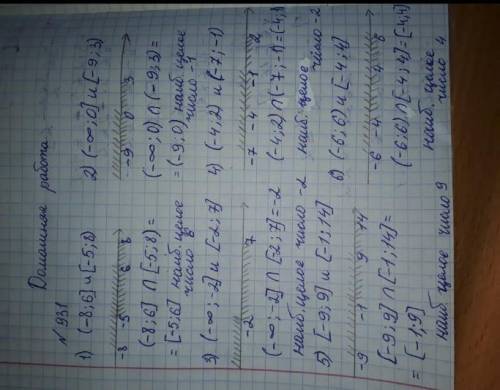 Домашняя работа
№ 931
1) (-8;6] и [-5;8)
-8 -5 6 8
(-8;6] ∩ [-5;8) =
= [-5;6] наиб. целое
число 6
3) (-∞;-2] и [-2;7]
-2 7
(-∞;-2] ∩ [-2;7] = -2
наиб. целое число -2
5) [-9;9] и [-1;14]
-9 -1 9 14
[-9;9] ∩ [-1;14] =
= [-1;9]
наиб целое число 9
2) (-∞;0) и (-9;3)
-9 0 3
(-∞;0) ∩ (-9;3) =
= (-9;0) наиб. целое
число -1
4) (-4;2) и (-7;-1)
-7 -4 -1 2
(-4;2) ∩ (-7;-1) = (-4;
наиб. целое
число -2
6) (-6;6) и [-4;4]
-6 -4 4 6
(-6;6) ∩ [-4;4] = [-4;4]
наиб. целое
число 4